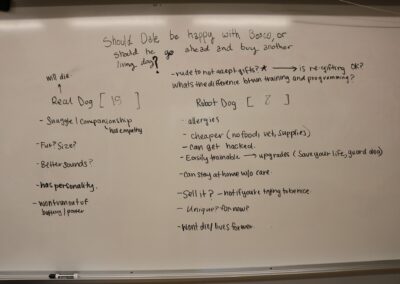 Should Dale be happy with Bosco, or
should he go ahead and buy another
living dog?
- rude to not accept gifts? * → is re-gifting OK?
whats the difference btwn training and programming?
will die
Real Dog [ 15 ]
- Snuggle / Companionship
has empathy
- Fur? Size?
- Better sounds?
- has personality.
- wont run out of
battery / power
Robot Dog [ 7 ]
- allergies
- cheaper (no food, vet, supplies)
- Can get hacked.
- Easily trainable → upgrades (save your life, guard dog)
- Can stay at home w/o care
- Sell it? - not if you're trying to be nice
- Unique? for now?
- Wont die / lives forever.